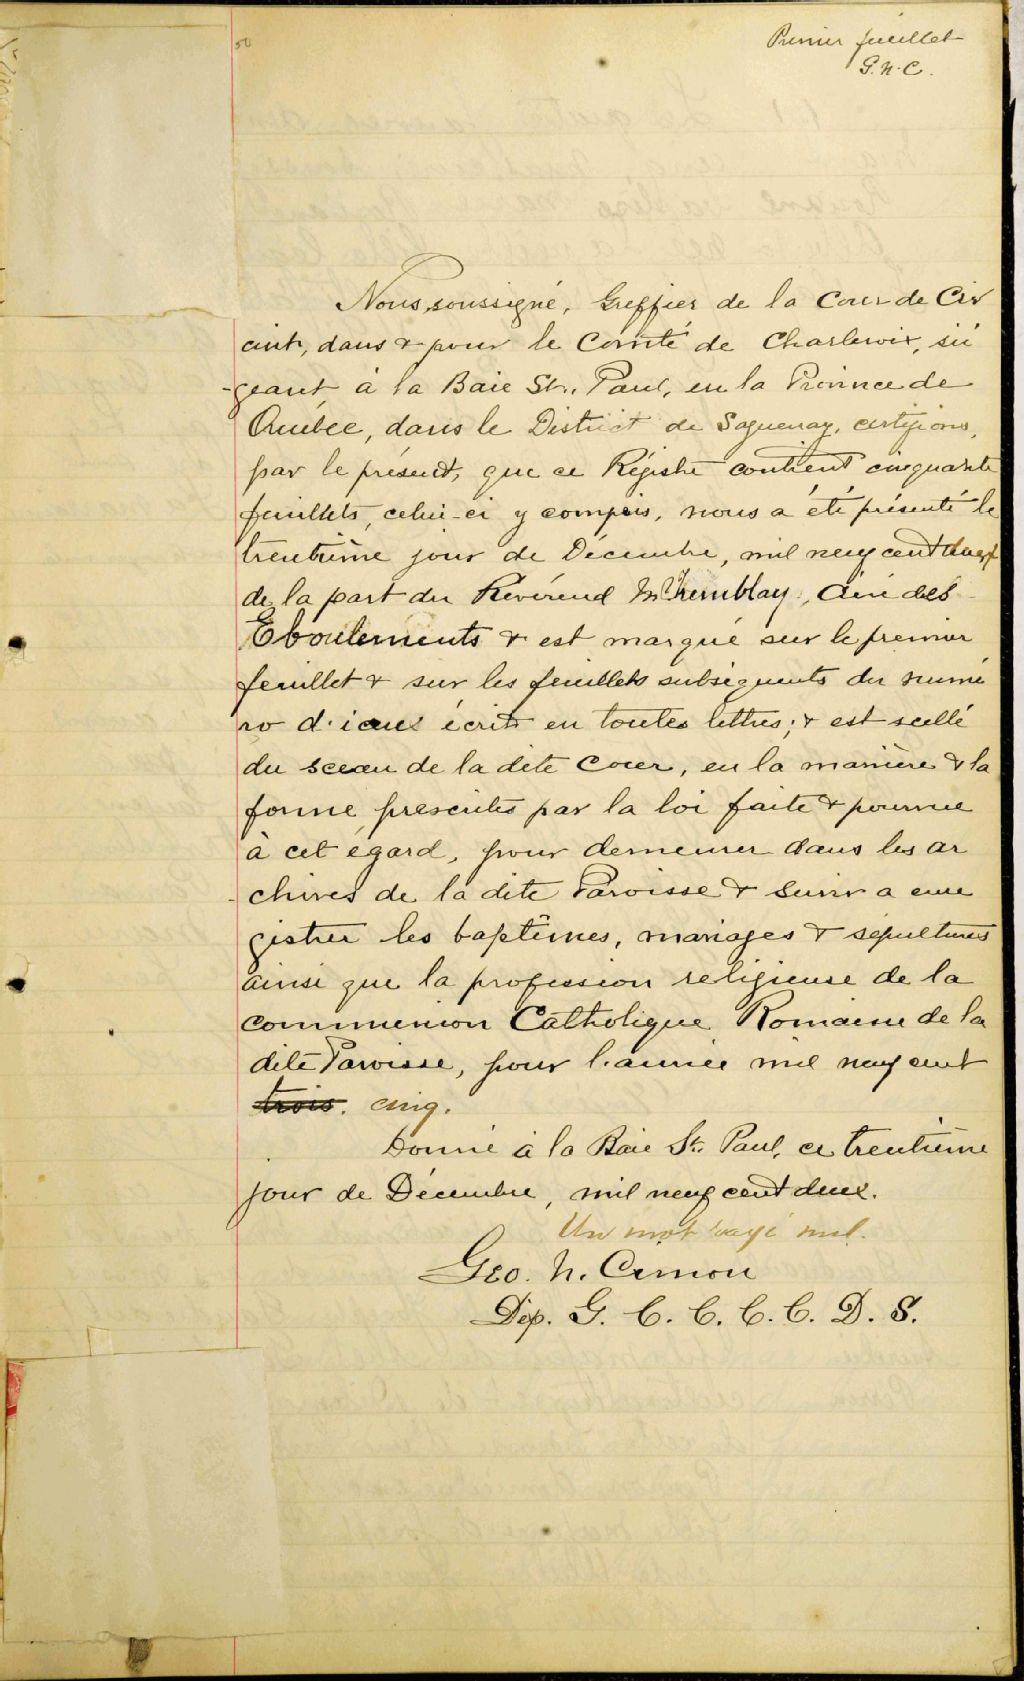 50
Premier feuillet
G.N.C.
Nous, soussigné, Greffier de la Cour de Cir
cuit, dans & pour le Comté de Charlevoix, sié
-geant, à la Baie St. Paul, en la Province de
Québec, dans le District de Saguenay, certifions,
par le présent, que ce Régistre contient cinquante
feuillets, celui-ci y compris, nous a été présenté le
trentième jour de Décembre, mil neuf cent deux
de la part du Révérend Mr Tremblay, Curé des
Eboulements & est marqué sur le premier
feuillet & sur les feuillets subséquents du numé
ro d'iceux écrits en toutes lettres; & est scellé
du sceau de la dite Cour, en la manière & la
forme prescrites par la loi faite & pourvue
à cet égard, pour demeurer dans les ar
-chives de la dite Paroisse & servir a enre
gistrer les baptêmes, mariages & sépultures
ainsi que la profession religieuse de la
communion Catholique Romaine de la
dite Paroisse, pour l'année mil neuf cent
trois. cinq.
Donné à la Baie St. Paul, ce trentième
jour de Décembre, mil neuf cent deux.
Un mot rayé nul.
Geo. N. Cimon
Dép. G. C. C. C. C. D. S.